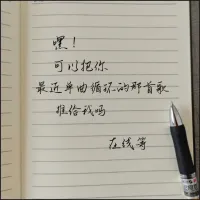 嘿！
可以把你
最近单曲循环的那首歌
推给我吗
在线等